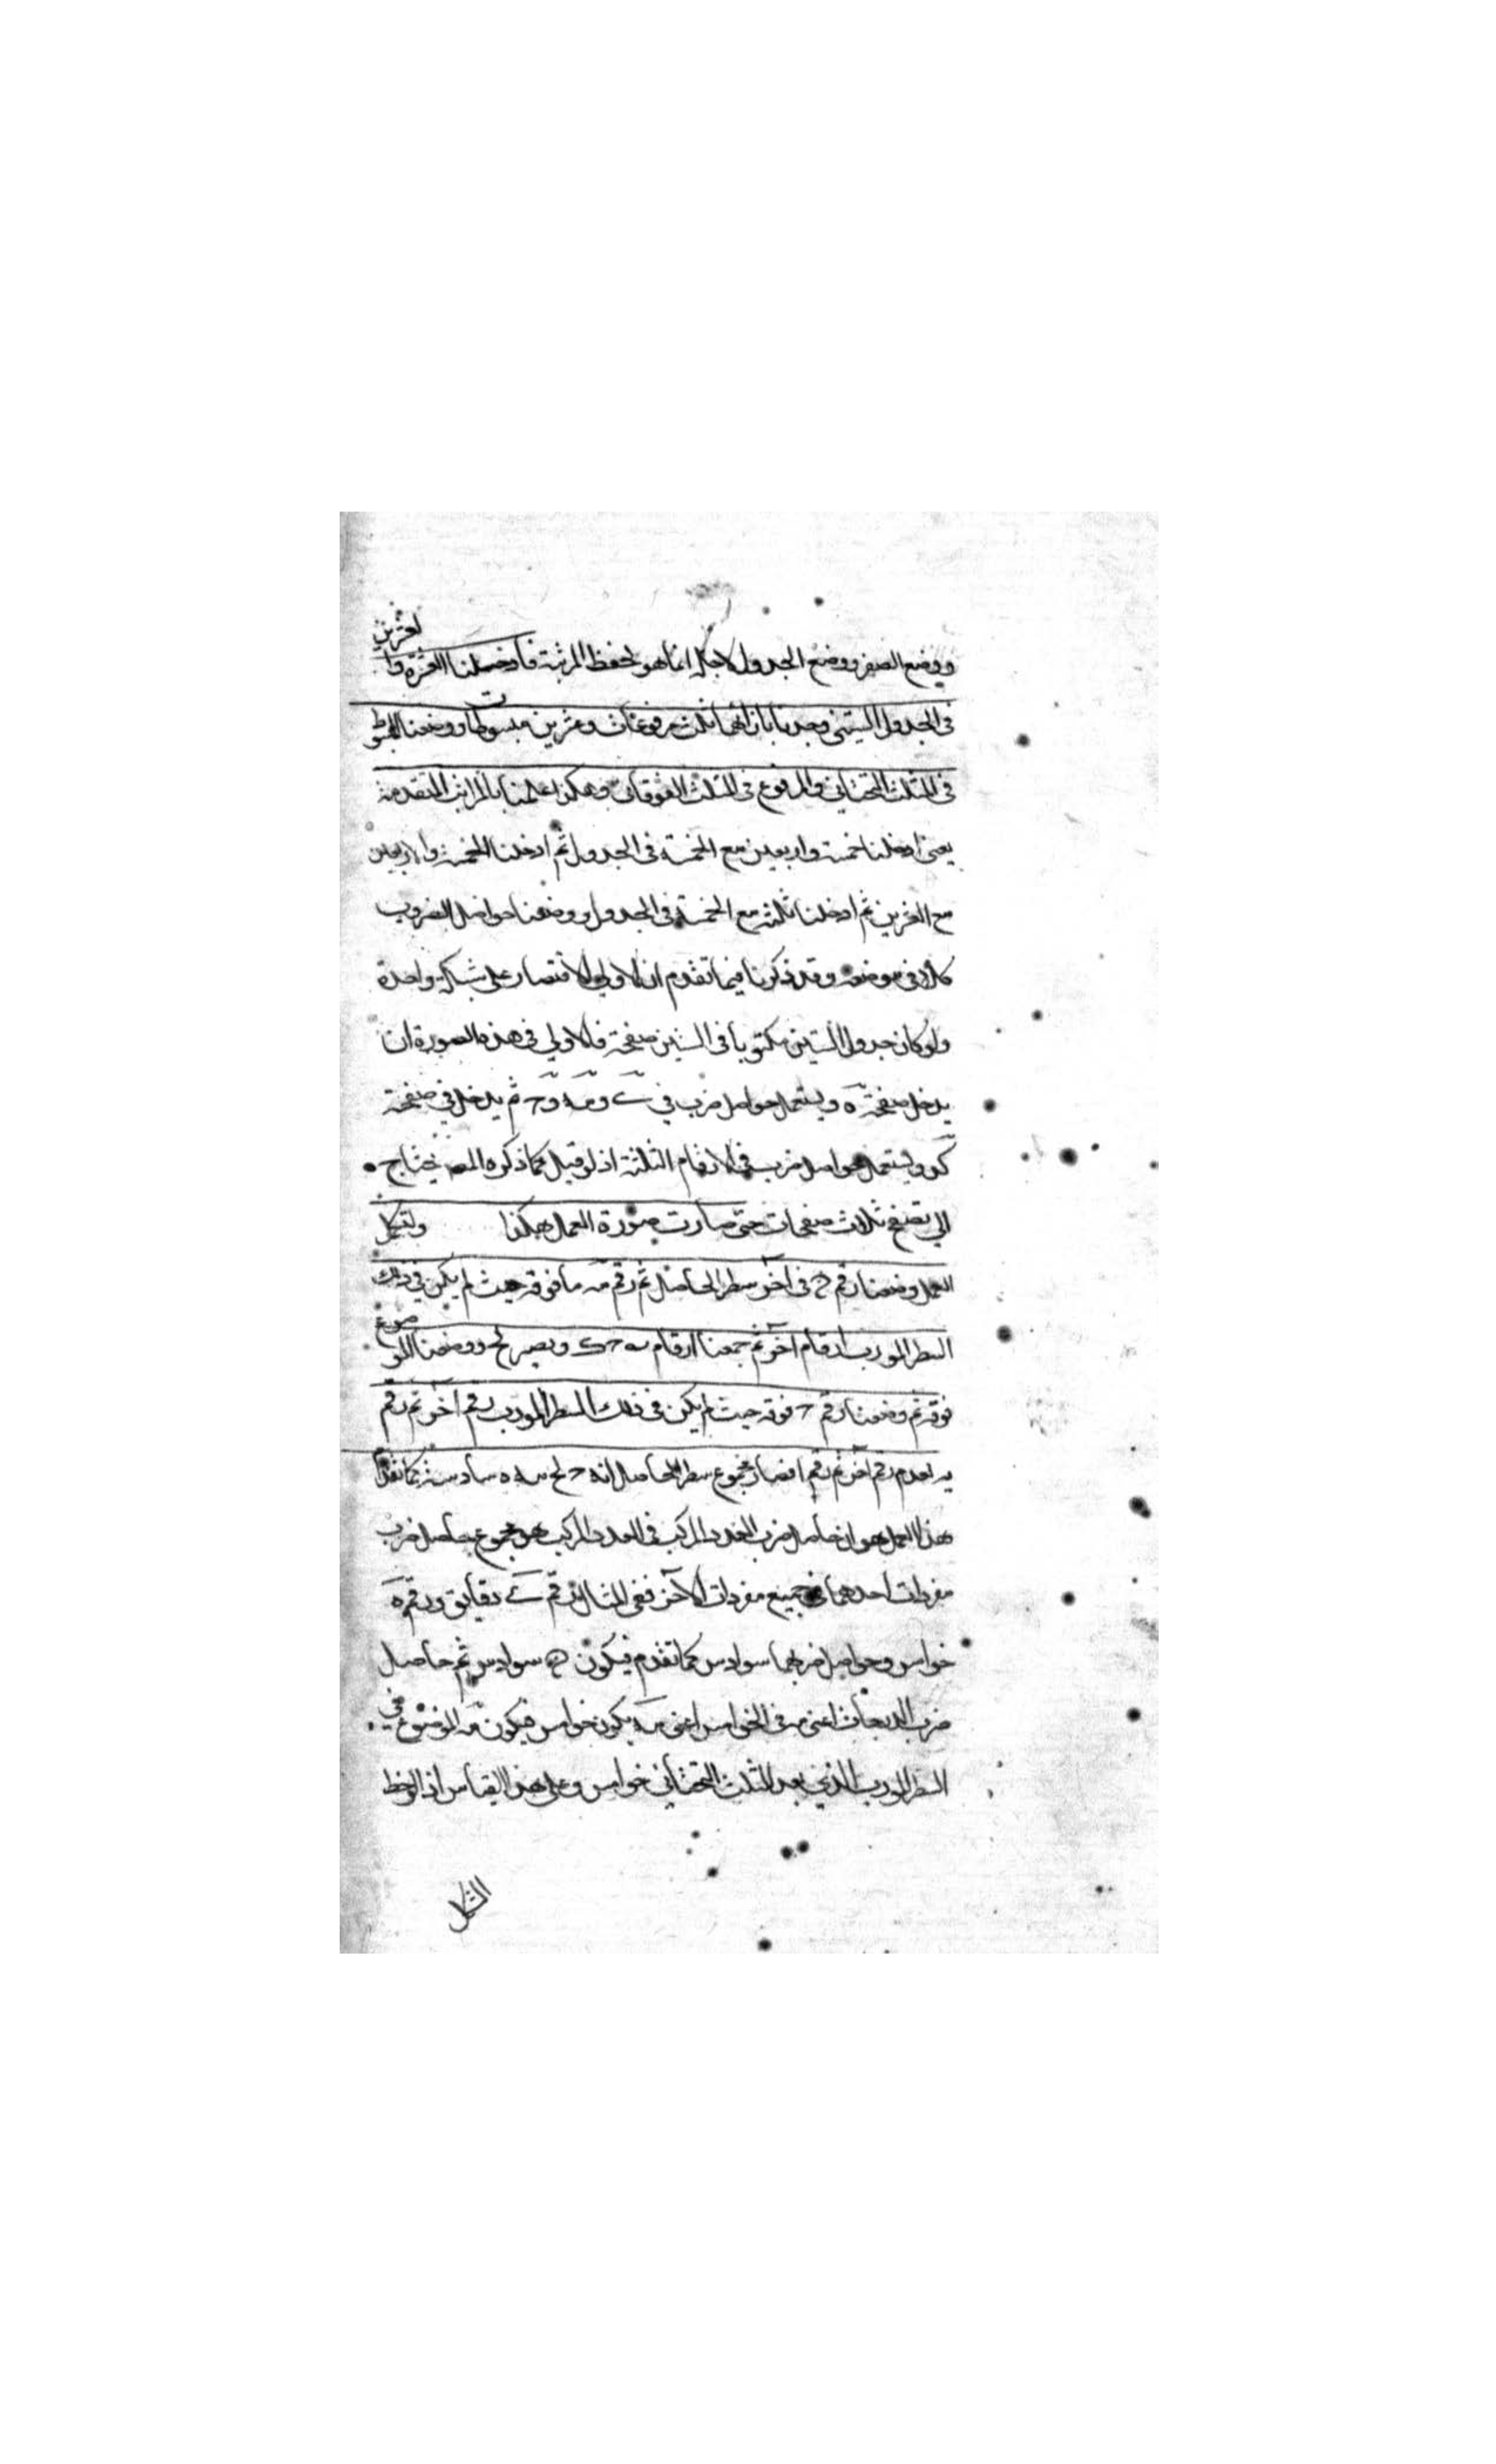 ووضع الصفر ووضع الجدول لاجله انما هو لحفظ المرتبة فادخلنا العشرة و
العشرين
فى الجدول الستينى وجدنا بازائهما ثلث مرفوعات وعشرين مبسوطا ووضعنا المبسوط
فى المثلث التحتانى والمرفوع فى المثلث الفوقانى وهكذا عملنا بالمراتب المتقدمة
يعنى ادخلنا خمسة واربعين مع الخمسة فى الجدول ثم ادخلنا الخمسة والاربعين
مع العشرين ثم ادخلنا ثلثة مع الخمسة فى الجدول ووضعنا حواصل الضروب
كلا فى موضعه وقد ذكرنا فيما تقدم ان الاولى الاقتصار على شبكة واحدة
ولو كان جدول الستين مكتوبا فى الستين صفحة فالاولى فى هذه الصورة ان
يدخل صفحة ه ويستعمل حواصل ضرب فى ك ومه و ثم يدخل فى صفحة
ويستعمل حواصل ضرب فى الارقام الثلثة اذ لو قيل كما ذكره المص يحتاج
الى تصفح ثلاث صفحات حتى صارت صورة العمل هكذا ولتكمل
العمل وضعنا رقم فى آخر سطر الحاصل ثم رقم مه ما فوقه حيث لم يكن فى ذلك
السطر المورب ارقام آخر ثم جمعنا ارقام ويصير لح ووضعنا الموضوع
فوقه ثم وضعنا رقم فوقه حيث لم يكن فى ذلك السطر المورب رقم آخر ثم رقم
يه لعدم رقم آخر ثم رقم ا فصار مجموع سطر الحاصل انه لح سادسة كما تقدم
هذا العمل هو ان حاصل ضرب العدد المركب فى العدد المركب هو مجموع حاصل ضرب
مفردات احدهما فى جميع مفردات الآخر ففى المثال رقم ك دقايق ورقم ه
خوامس وحواصل ضربهما سوادس كما تقدم فيكون سوادس ثم حاصل
ضرب الدرجات اعنى فى الخوامس اعنى يكون خوامس فيكون مه الموضوع فى
السطر المورب الذى بعد المثلث التحتانى خوامس وعلى هذا القياس اذ الخط
الشكل